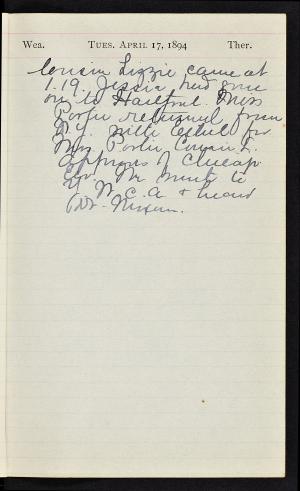 Wea. TUES. APRIL 17, 1894 Ther.
Cousin Lizzie came at
1.19. Jessie had gone
on to Hartford. Miss
Porter returned from
N.Y. with for
Mrs. Porter, Cousin L.
approves of
We went to
Y. W. C. A & heard